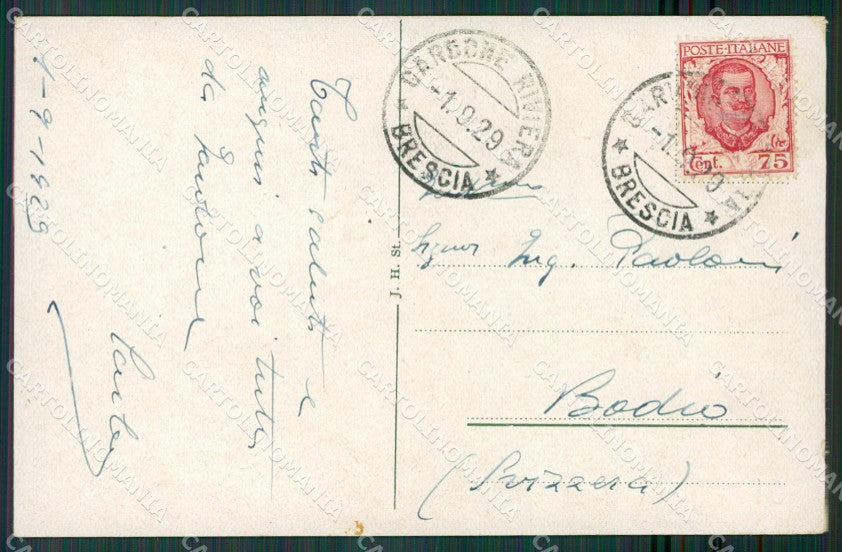 1-9-1929
Tanti saluti e
auguri a voi tutti
da Gardone
GARDONE RIVIERA
-1.9.29
BRESCIA
POSTE·ITALIANE
Cent. 75
GARDONE RIVIERA
-1.9.29
BRESCIA
J. H. St.
Signor Ing. Paoloni
Bodio
(Svizzera)
CARTOLINOMANIA